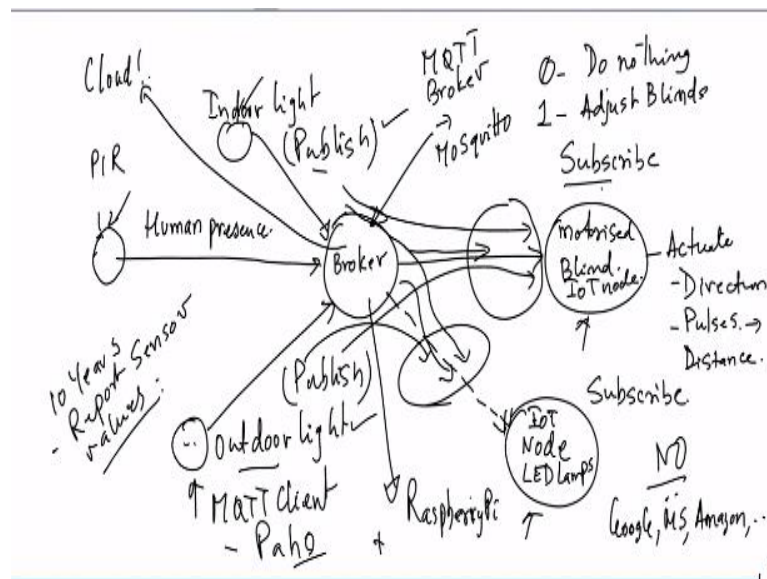 Cloud!
Indoor light
(Publish)
MQTT
Broker
Mosquitto
0- Do nothing
1- Adjust Blinds
Subscribe
PIR
Human presence.
Broker
motorised
Blind.
IoT node.
Actuate
- Direction
- Pulses. →
Distance.
10 Years
- Report Sensor
values:
(Publish)
Outdoor light
MQTT Client
- Paho
RaspberryPi
Subscribe
IoT
Node
LED lamps
NO
Google, MS, Amazon,..